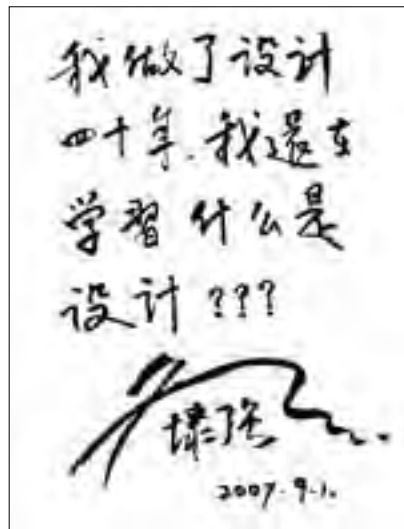 我做了设计
四十年.我還在
学習什么是
设计???
2007.9.1.